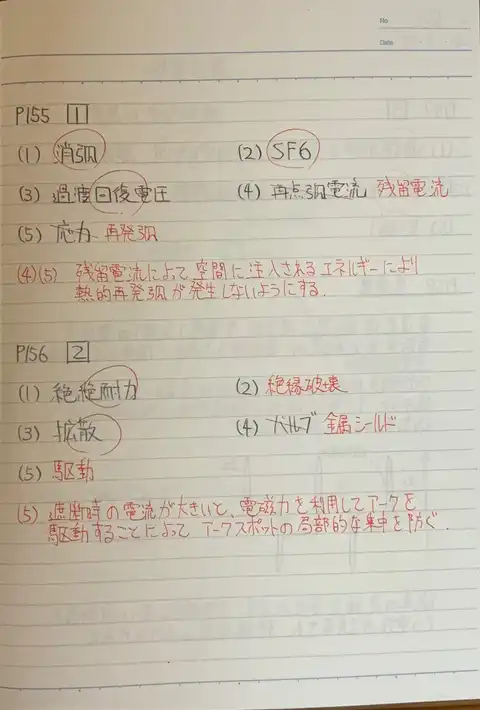 No
Date
P155 1
(1) 消弧 (2) SF6
(3) 過渡回復電圧 (4) 再点弧電流 残留電流
(5) 応力 再発弧
(4)(5) 残留電流によって空間に注入されるエネルギーにより
熱的再発弧が発生しないようにする.
P156 2
(1) 絶縁耐力 (2) 絶縁破壊
(3) 拡散 (4) バルブ 金属シールド
(5) 駆動
(5) 遮断時の電流が大きいと、電磁力を利用してアークを
駆動することによって アークスポットの局部的な集中を防ぐ.